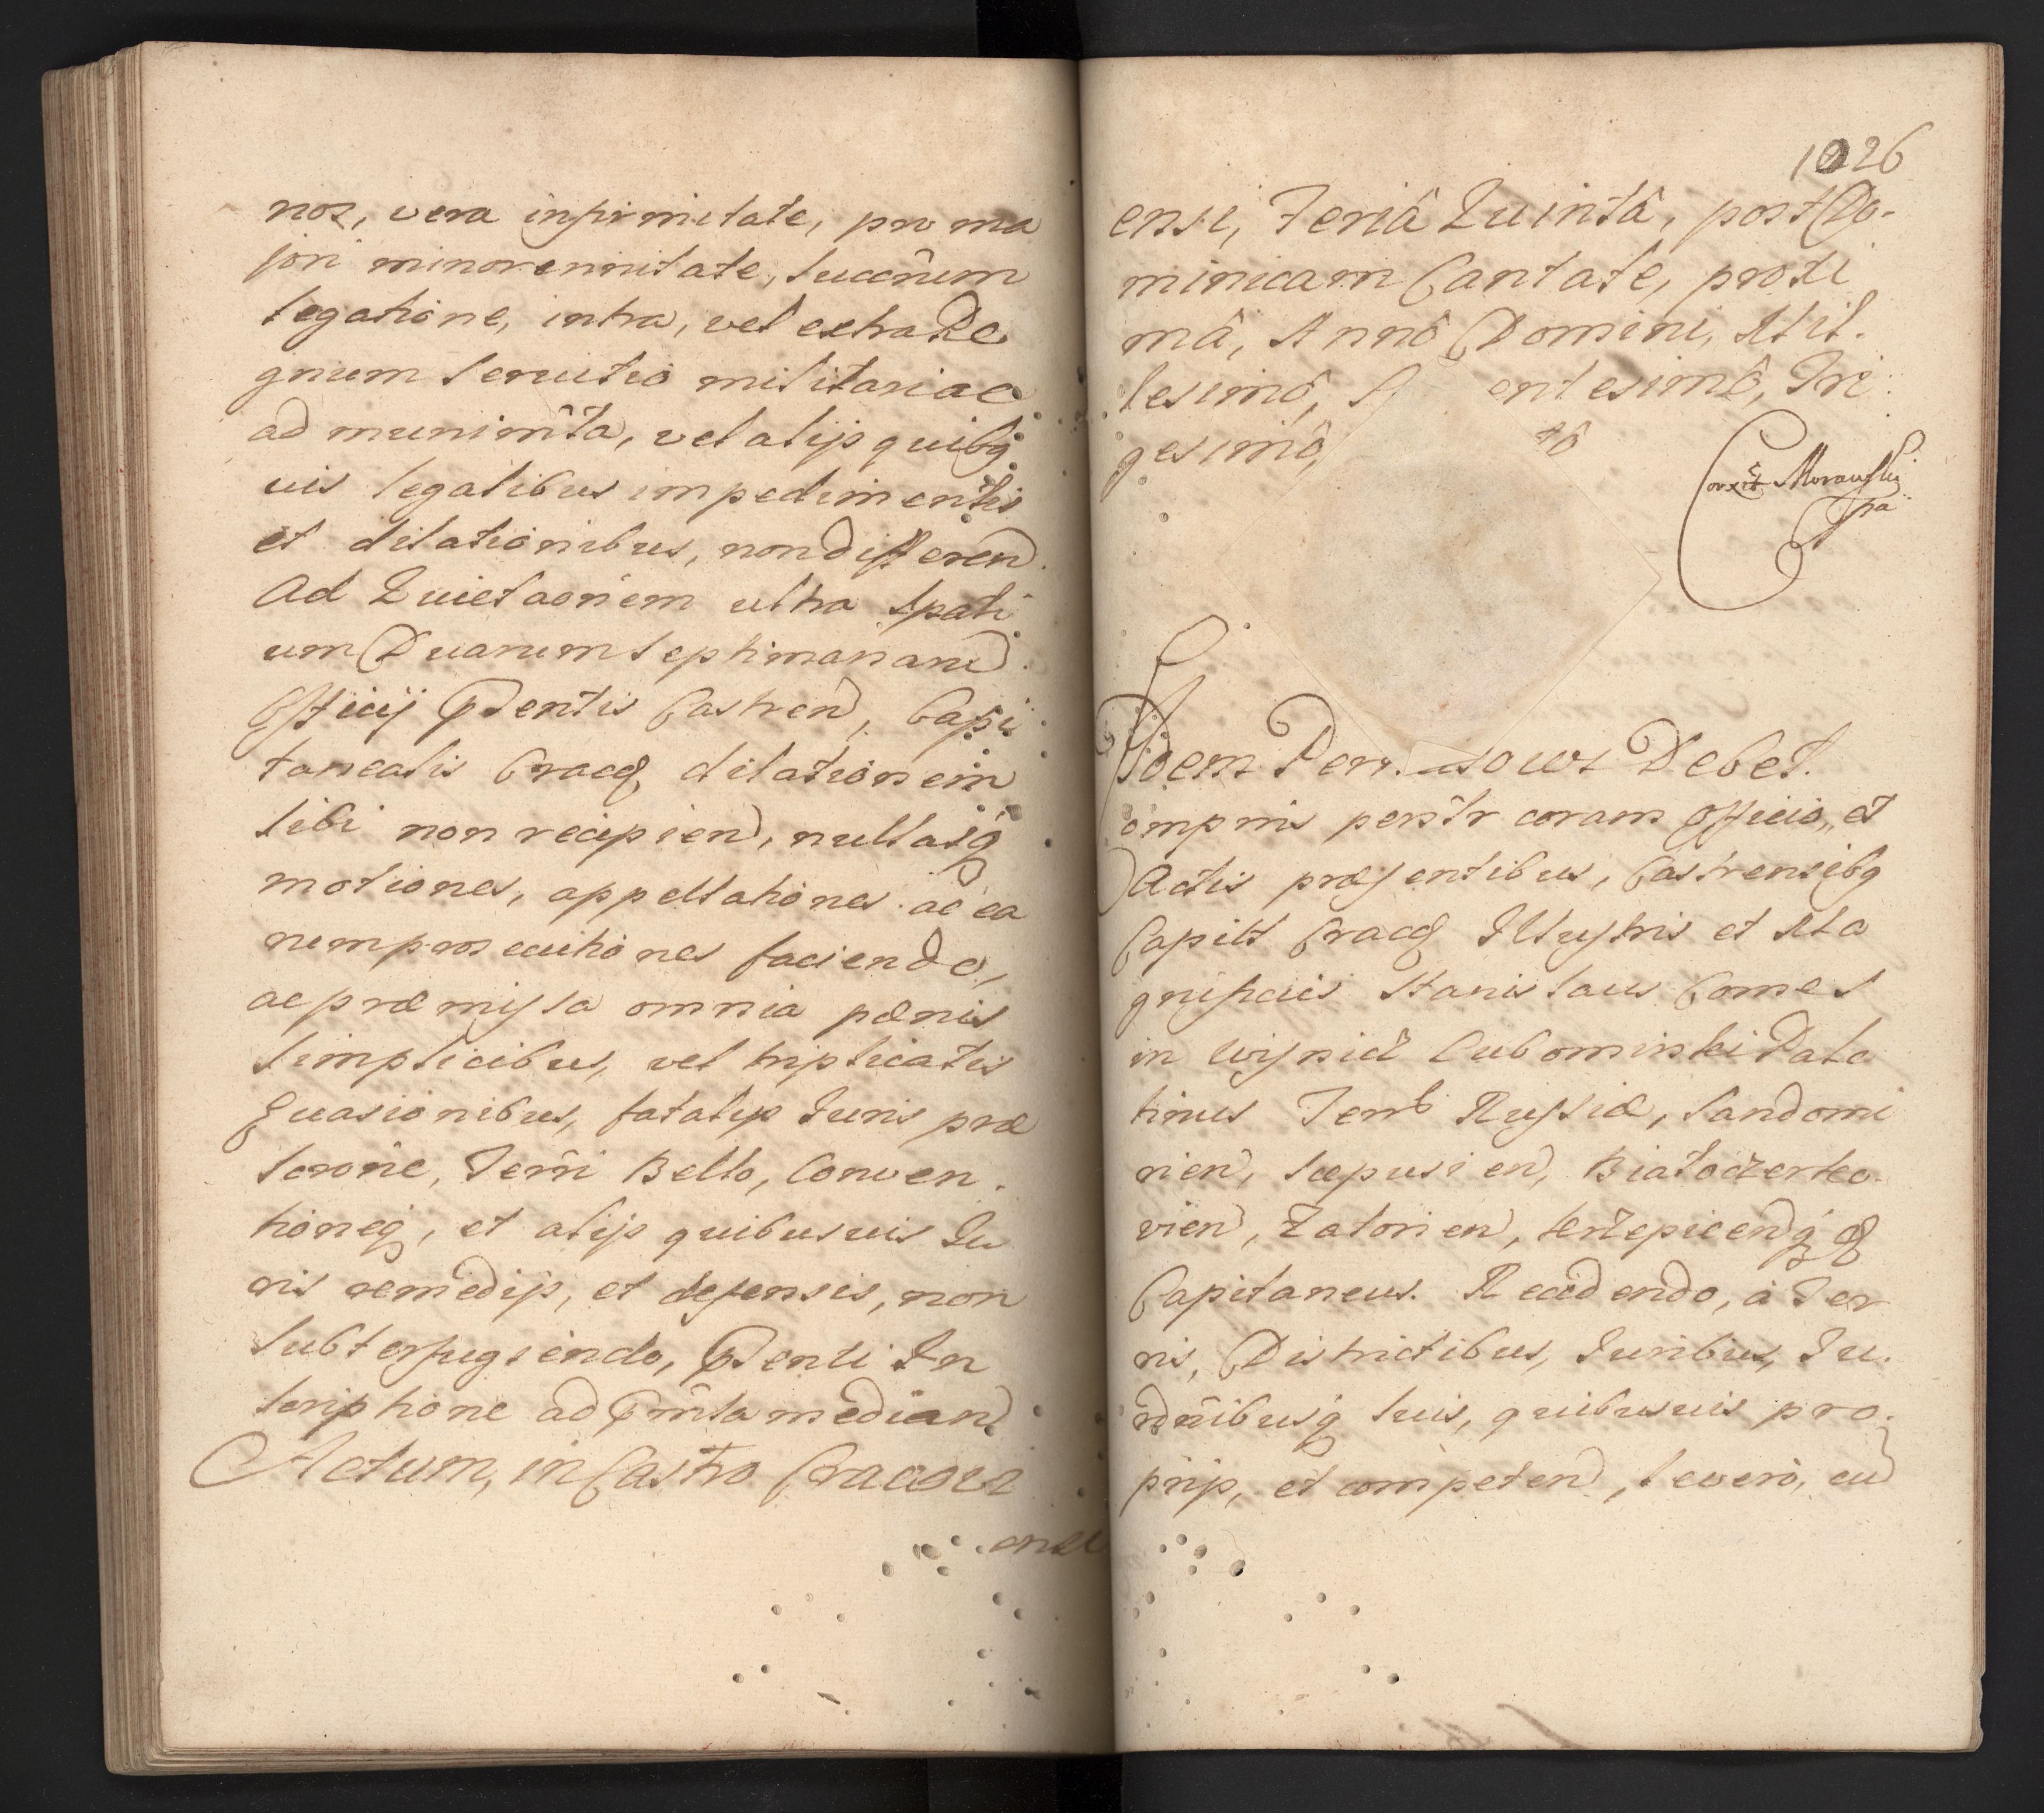 nos, vera infirmitate, pro ma
jori minorennitate, succȏrum
legatione, intra, vel extra Re
gnum servitio militari ac
ad munimȇta, vel alijs quibq
uis legalibus impedimentis
et dilationibus, non differend.
Ad Quietaonem ultra spati
um Duarum Septimanarũ.
Officij Psentis Castren, Capi
tanealis Crac dilationem
sibi non recipien, nullasq
motiones, appellationes ac ea
rum prosecutiones faciendo,
ac præmissa omnia pænis
simplicibus, vel triplicatis
Evasionibus, fatalijs Juris præ
scrone, Terri Bello, Conven.
tioneq, et alijs quibusuis Ju
ris remedijs, et defensis, non
subterfugiendo, Psenti In
scriptione ad Pmta median
Actum, in Castro Cracovi
ensi
1026
ensi, Feriâ Quintâ, post Do-
minicam Cantate, proxi
mâ, Annô Domini, Mil-
lesimô, S entesimô, Tri
gesimô, tô
Corxit Morawski
mpa
Idem Perr. sows Debet.
ompnis perstr coram Officio, et
Actis præsentibus, Castrensibq
Capilt Crac Illustris et Ma
gnificus Stanislaus Comes
in Wisnicz Lubomirski Pala
tinus Terrr Russiæ, Sandomi
rien, Scepusien, Białoczerko-
vien, Zatorien, Krzepicenq &
Capitaneus. Recedendo, à Ter
ris, Districtibus, Juribus, Ju-
rdnibusq suis, quibusuis pro-
prijs, et competen, se verò, cũ